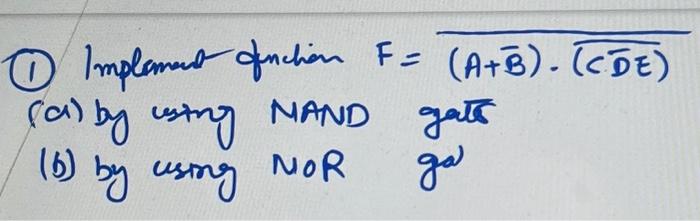 ① Implement function F = \overline{(A+\overline{B}) . \overline{(C\overline{D}E)}}
(a) by using NAND gats
(b) by using NOR ga